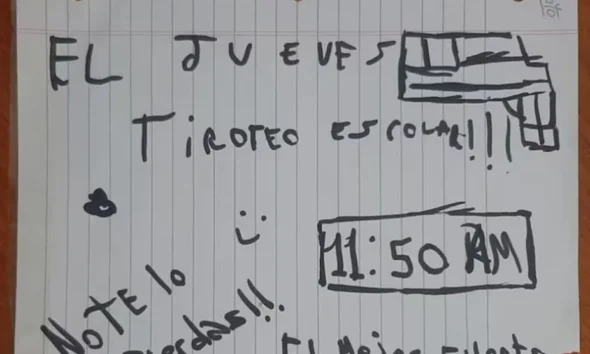 EL JUEVES
TiROTEO ESCOLAR!!!
11:50 AM
NOTE lo
El Mejor